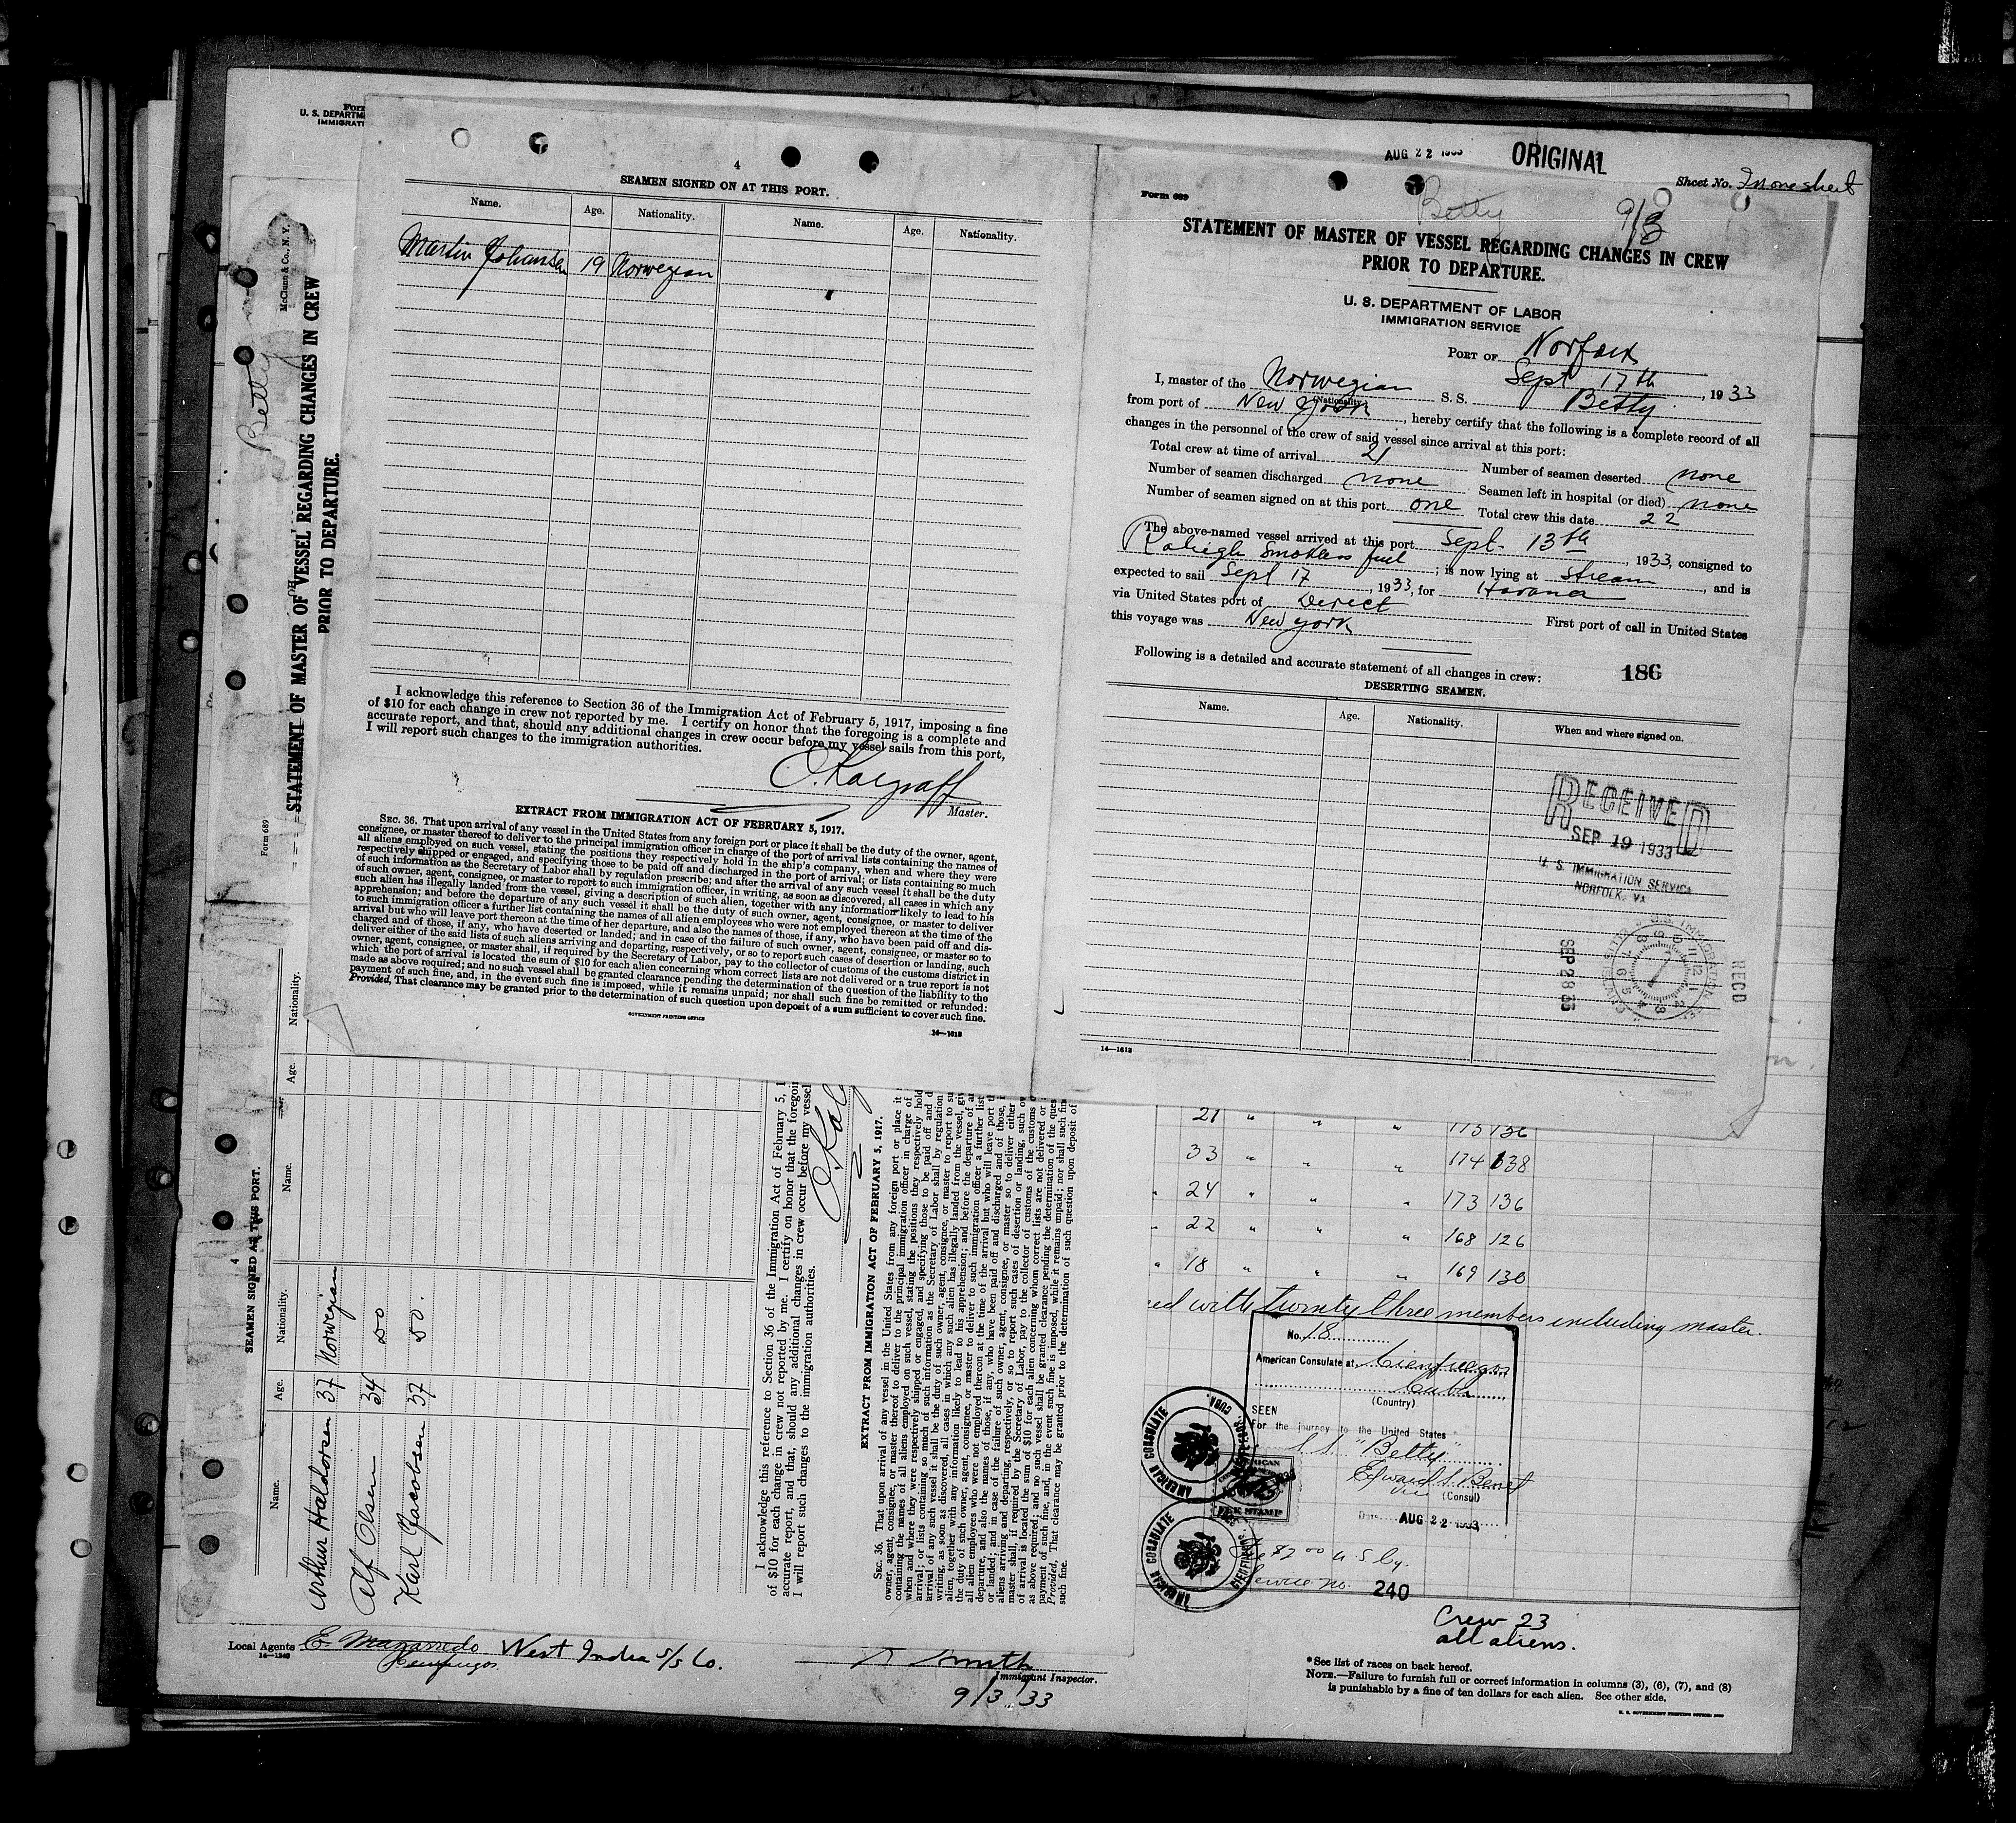 AUG 22 1933
ORIGINAL
Sheet No.
Form 689
Betty
9/3
STATEMENT OF MASTER OF VESSEL REGARDING CHANGES IN CREW
PRIOR TO DEPARTURE.
U. S. DEPARTMENT OF LABOR
IMMIGRATION SERVICE
PORT OF Norfolk
Sept 17th, 1933
I, master of the Norwegian S. S. Betty
(Nationality)
from port of New York, hereby certify that the following is a complete record of all
changes in the personnel of the crew of said vessel since arrival at this port:
Total crew at time of arrival 21 Number of seamen deserted none
Number of seamen discharged none Seamen left in hospital (or died) none
Number of seamen signed on at this port one Total crew this date 22
The above-named vessel arrived at this port Sept. 13th, 1933, consigned to
Raleigh Smokless fuel; is now lying at Stream, and is
expected to sail Sept 17, 1933, for Havana
via United States port of Direct First port of call in United States
this voyage was New York
Following is a detailed and accurate statement of all changes in crew:
186
DESERTING SEAMEN.
Name. Age. Nationality. When and where signed on.
RECEIVED
SEP 19 1933
U. S. IMMIGRATION SERVICE
NORFOLK, VA
SEP 28 33
RECD
14—1612
4
SEAMEN SIGNED ON AT THIS PORT.
Name. Age. Nationality. Name. Age. Nationality.
Martin Johansen 19 Norwegian
I acknowledge this reference to Section 36 of the Immigration Act of February 5, 1917, imposing a fine
of $10 for each change in crew not reported by me. I certify on honor that the foregoing is a complete and
accurate report, and that, should any additional changes in crew occur before my vessel sails from this port,
I will report such changes to the immigration authorities.
Master.
EXTRACT FROM IMMIGRATION ACT OF FEBRUARY 5, 1917.
SEC. 36. That upon arrival of any vessel in the United States from any foreign port or place it shall be the duty of the owner, agent,
consignee, or master thereof to deliver to the principal immigration officer in charge of the port of arrival lists containing the names of
all aliens employed on such vessel, stating the positions they respectively hold in the ship's company, when and where they were
respectively shipped or engaged, and specifying those to be paid off and discharged in the port of arrival; or lists containing so much
of such information as the Secretary of Labor shall by regulation prescribe; and after the arrival of any such vessel it shall be the duty
of such owner, agent, consignee, or master to report to such immigration officer, in writing, as soon as discovered, all cases in which any
such alien has illegally landed from the vessel, giving a description of such alien, together with any information likely to lead to his
apprehension; and before the departure of any such vessel it shall be the duty of such owner, agent, consignee, or master to deliver
to such immigration officer a further list containing the names of all alien employees who were not employed thereon at the time of the
arrival but who will leave port thereon at the time of her departure, and also the names of those, if any, who have been paid off and dis-
charged and of those, if any, who have deserted or landed; and in case of the failure of such owner, agent, consignee, or master so to
deliver either of the said lists of such aliens arriving and departing, respectively, or so to report such cases of desertion or landing, such
owner, agent, consignee, or master shall, if required by the Secretary of Labor, pay to the collector of customs of the customs district in
which the port of arrival is located the sum of $10 for each alien concerning whom correct lists are not delivered or a true report is not
made as above required; and no such vessel shall be granted clearance pending the determination of the question of the liability to the
payment of such fine, and, in the event such fine is imposed, while it remains unpaid; nor shall such fine be remitted or refunded:
Provided, That clearance may be granted prior to the determination of such question upon deposit of a sum sufficient to cover such fine.
GOVERNMENT PRINTING OFFICE
14—1612
U. S. DEPARTM
IMMIGRATI
Betty
McClunn & Co. N. Y.
Form 689
STATEMENT OF MASTER OF VESSEL REGARDING CHANGES IN CREW
PRIOR TO DEPARTURE.
4
SEAMEN SIGNED AT THIS PORT.
Name. Age. Nationality. Name. Age. Nationality.
Arthur Haldorsen 37 Norwegian
Alf Olsen 34 do
Karl Jacobsen 37 do.
I acknowledge this reference to Section 36 of the Immigration Act of February 5, 1
of $10 for each change in crew not reported by me. I certify on honor that the foregoin
accurate report, and that, should any additional changes in crew occur before my vessel
I will report such changes to the immigration authorities.
EXTRACT FROM IMMIGRATION ACT OF FEBRUARY 5, 1917.
21 " " " 173 136
33 " " " 174 138
" 24 " " " 173 136
" 22 " " " 168 126
" 18 " " " 169 130
with twenty three members including master.
No. 18
American Consulate at Cienfuegos
Cuba
(Country)
SEEN
For the journey to the United States
S.S. "Betty"
(Consul)
Date AUG 22 1933
AMERICAN CONSULATE
CIENFUEGOS, CUBA.
FEE STAMP
240
Crew 23
all aliens.
Local Agents West India S/S Co.
14—1240
Cienfuegos
Smith
Immigrant Inspector.
9/3/33
*See list of races on back hereof.
NOTE.—Failure to furnish full or correct information in columns (3), (6), (7), and (8)
is punishable by a fine of ten dollars for each alien. See other side.